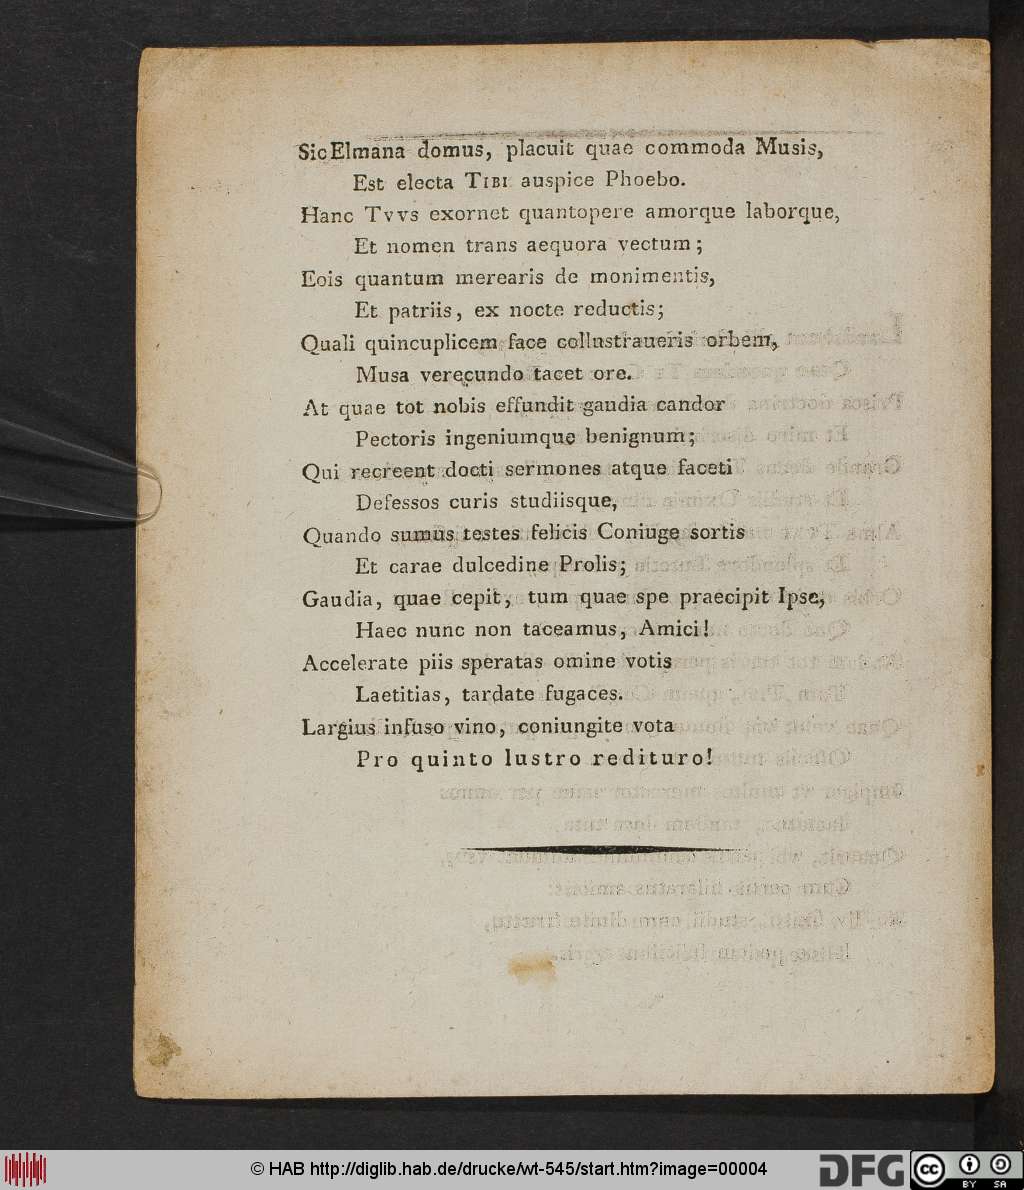 Sic Elmana domus, placuit quae commoda Musis,
Est electa TIBI auspice Phoebo.
Hanc TVVS exornet quantopere amorque laborque,
Et nomen trans aequora vectum;
Eois quantum merearis de monimentis,
Et patriis, ex nocte reductis;
Quali quincuplicem face collustraueris orbem,
Musa verecundo tacet ore.
At quae tot nobis effundit gaudia candor
Pectoris ingeniumque benignum;
Qui recreent docti sermones atque faceti
Defessos curis studiisque,
Quando sumus testes felicis Coniuge sortis
Et carae dulcedine Prolis;
Gaudia, quae cepit, tum quae spe praecipit Ipse,
Haec nunc non taceamus, Amici!
Accelerate piis speratas omine votis
Laetitias, tardate fugaces.
Largius infuso vino, coniungite vota
Pro quinto lustro redituro!
© HAB http://diglib.hab.de/drucke/wt-545/start.htm?image=00004
DFG
cc
BY SA